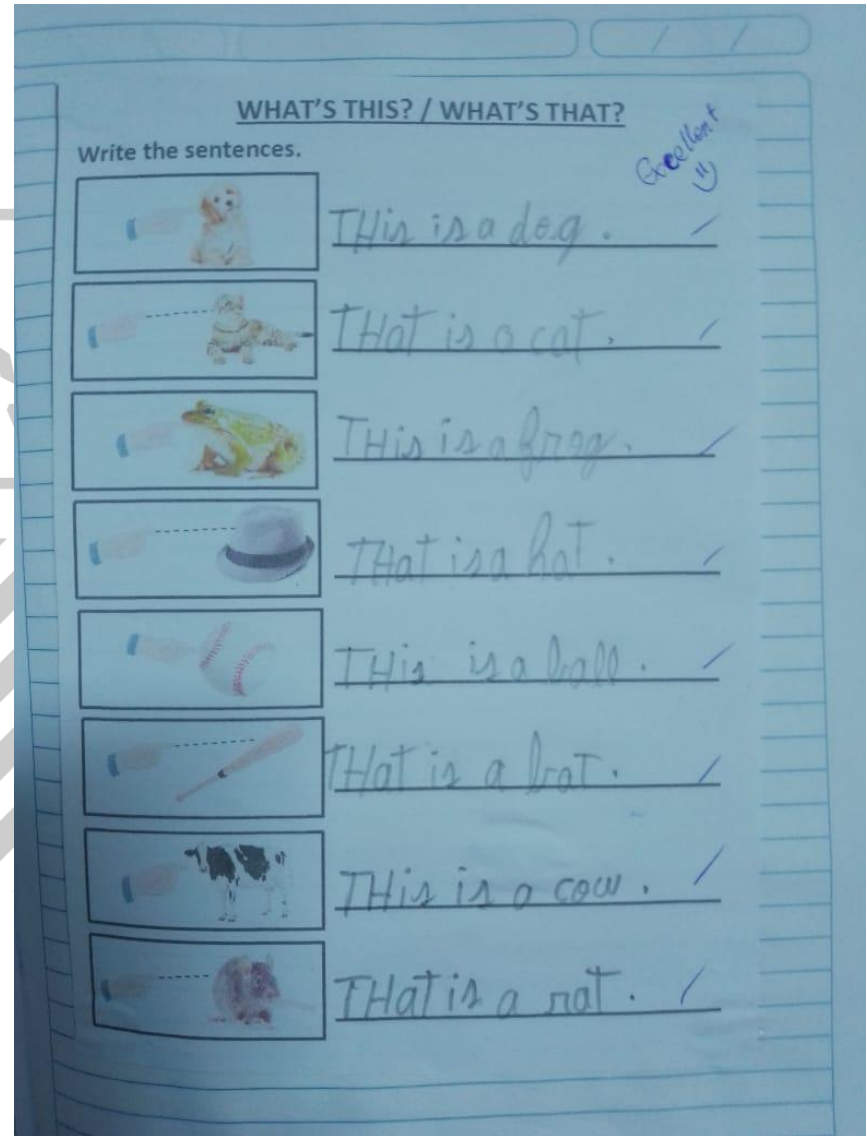 WHAT'S THIS? / WHAT'S THAT?
Excellent
Write the sentences.
THis is a dog.
THat is a cat.
THis is a frog.
THat is a hat.
THis is a ball.
THat is a bat.
THis is a cow.
THat is a rat.